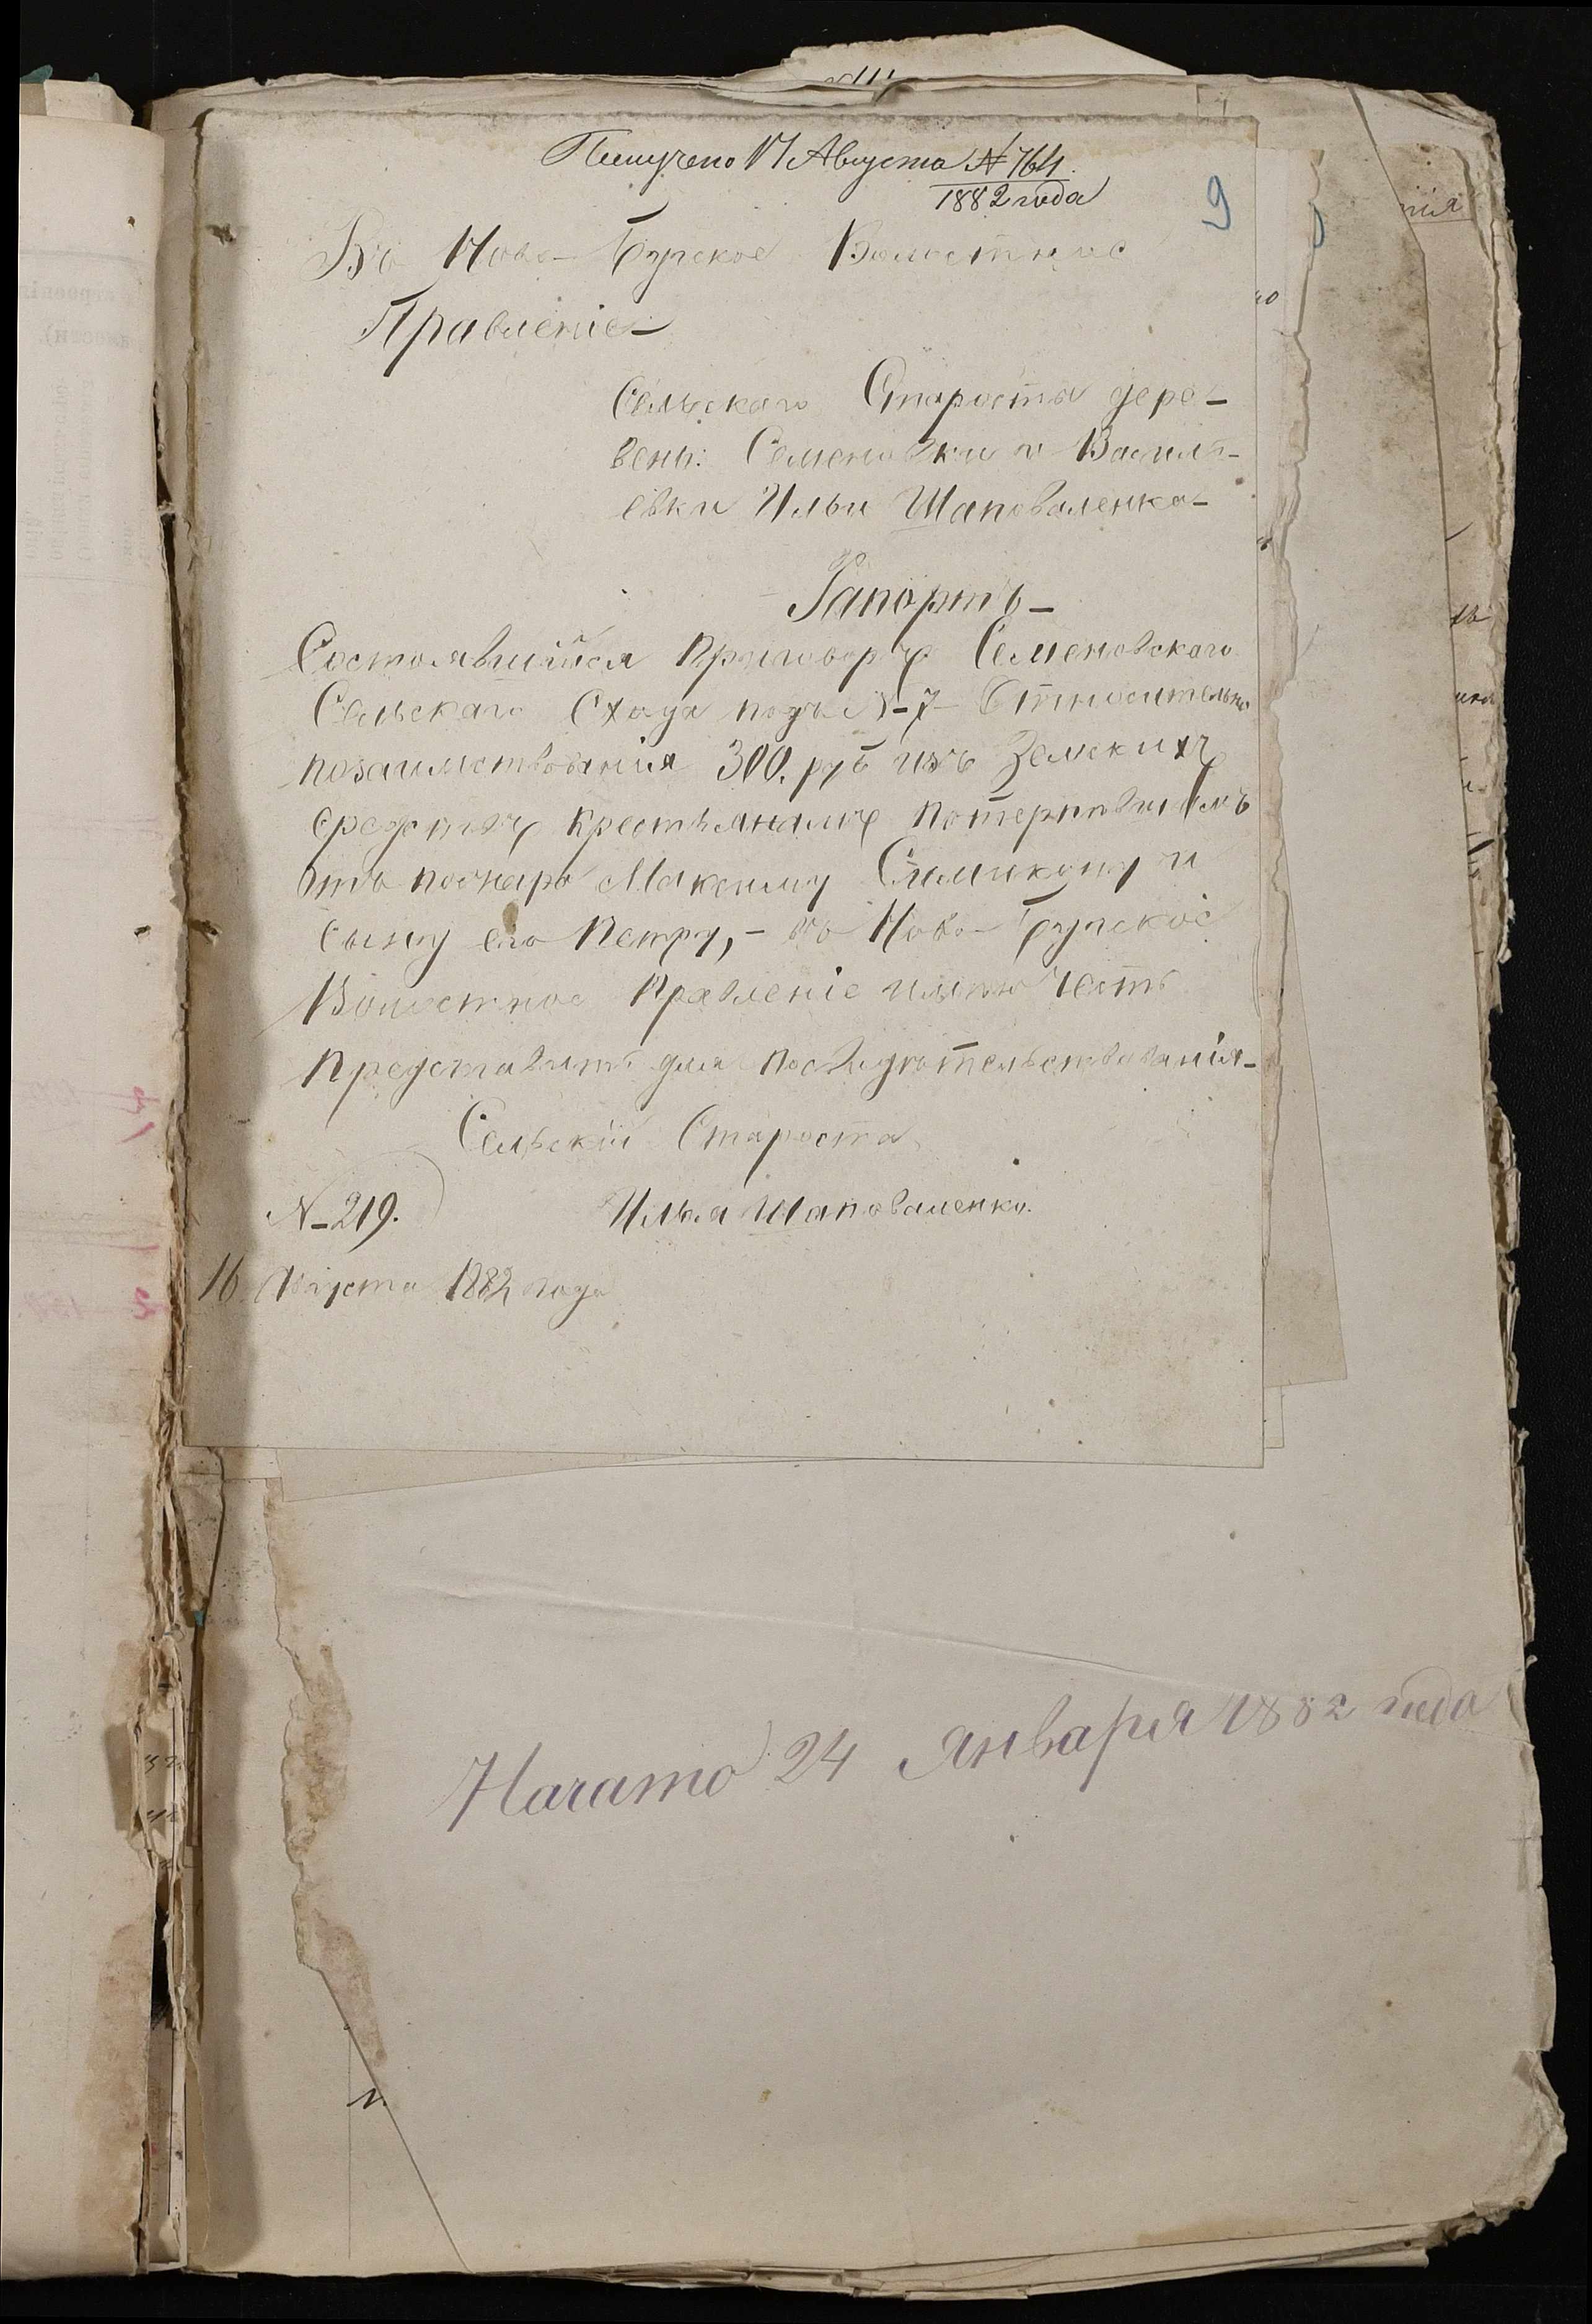 Получено 17 Августа № 764.
1882 года
9
Въ Ново-Бугское Волостное
Правленіе
Сельскаго Старосты дере-
вень: Семеновки и Василь-
евки Ильи Шаповаленка
Рапортъ
Состоявшійся приговоръ Семеновскаго
Сельскаго Схода подъ № 7 Относительно
позаимствованія 300. руб изъ Земскихъ
средствъ крестьянамъ потерпѣвшимъ
отъ пожара Максиму и
сыну его Петру, – въ Ново-Бугское
Волостное Правленіе имѣю честь
представить для посвидѣтельствованія
Сельскій Староста
№ 219. Илья Шаповаленко.
16 Августа 1882 года
Начато 24 Января 1882 года